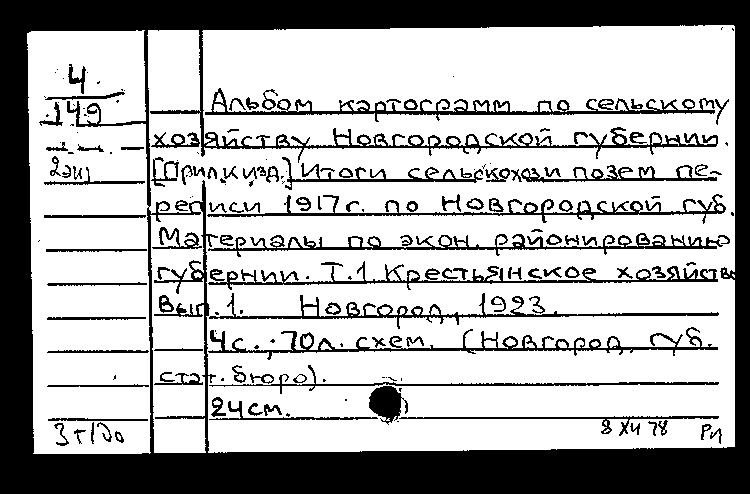 4
149
2 экз
Альбом картограмм по сельскому
хозяйству Новгородской губернии.
[Прил. к изд.] Итоги сельскохоз и позем пе-
реписи 1917 г. по Новгородской губ.
Материалы по экон. районированию
губернии. Т.1. Крестьянское хозяйство
Вып. 1. Новгород, 1923.
4 с.; 70 л. схем. (Новгород. губ.
стат. бюро).
24 см.
8 XII 78